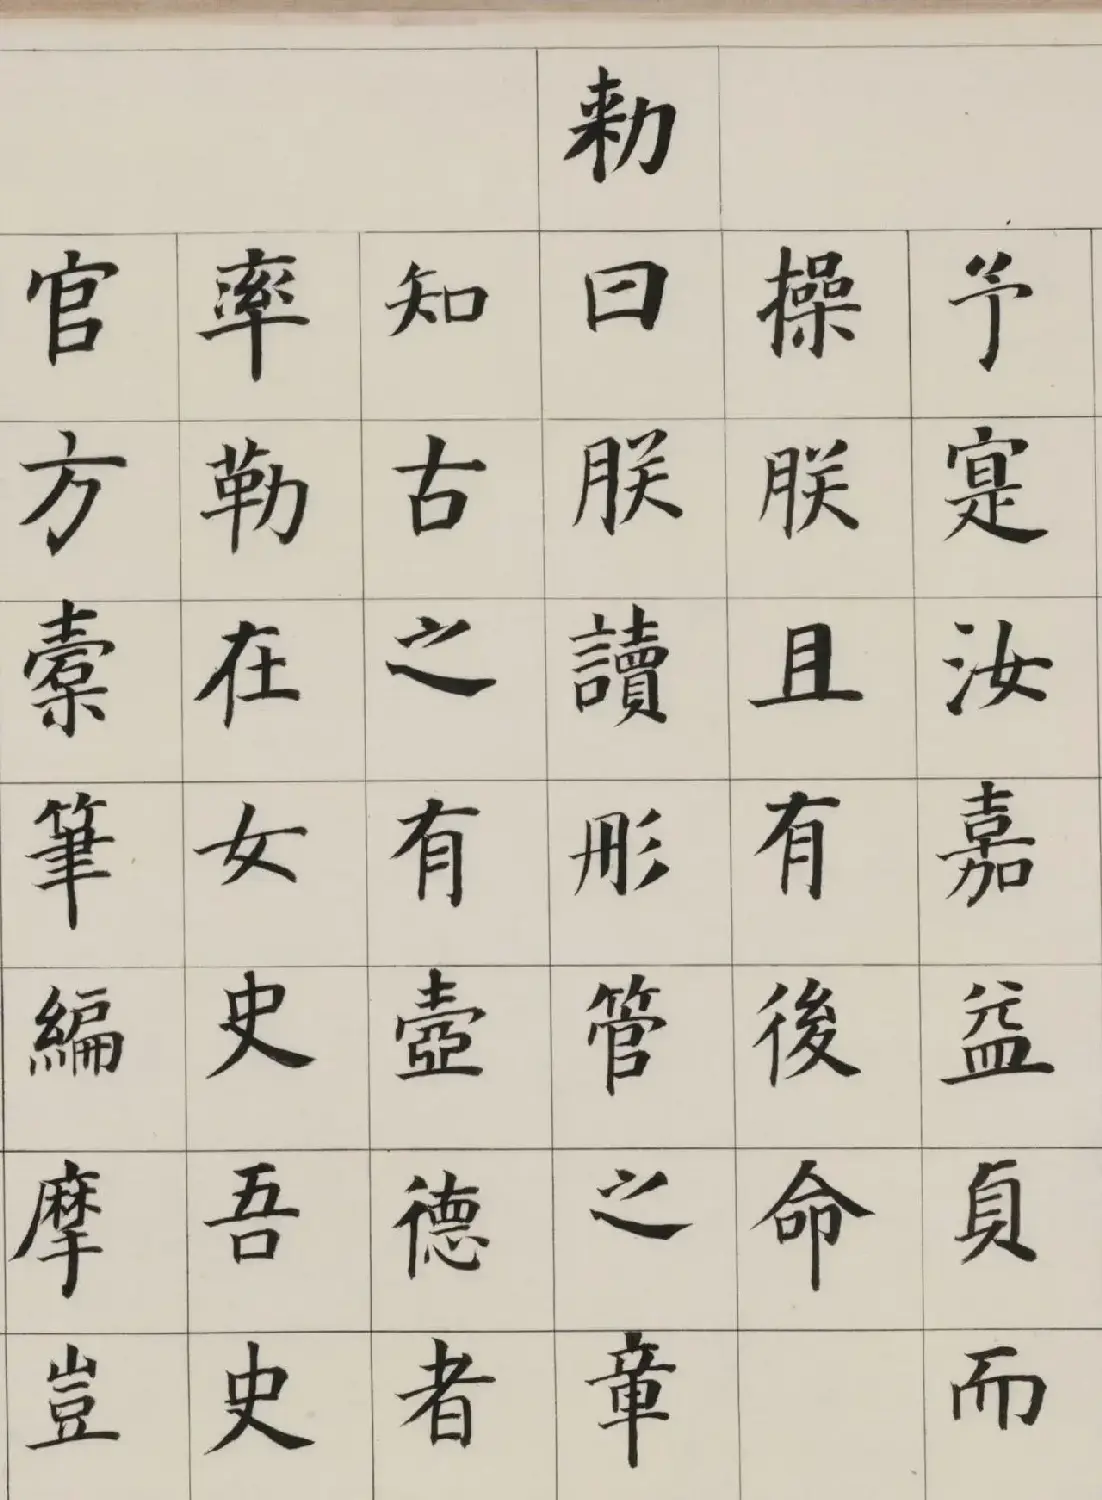 予寔汝嘉益貞而
操朕且有後命
勑曰朕讀彤管之章
知古之有壼德者
率勒在女史吾史
官方橐筆編摩豈